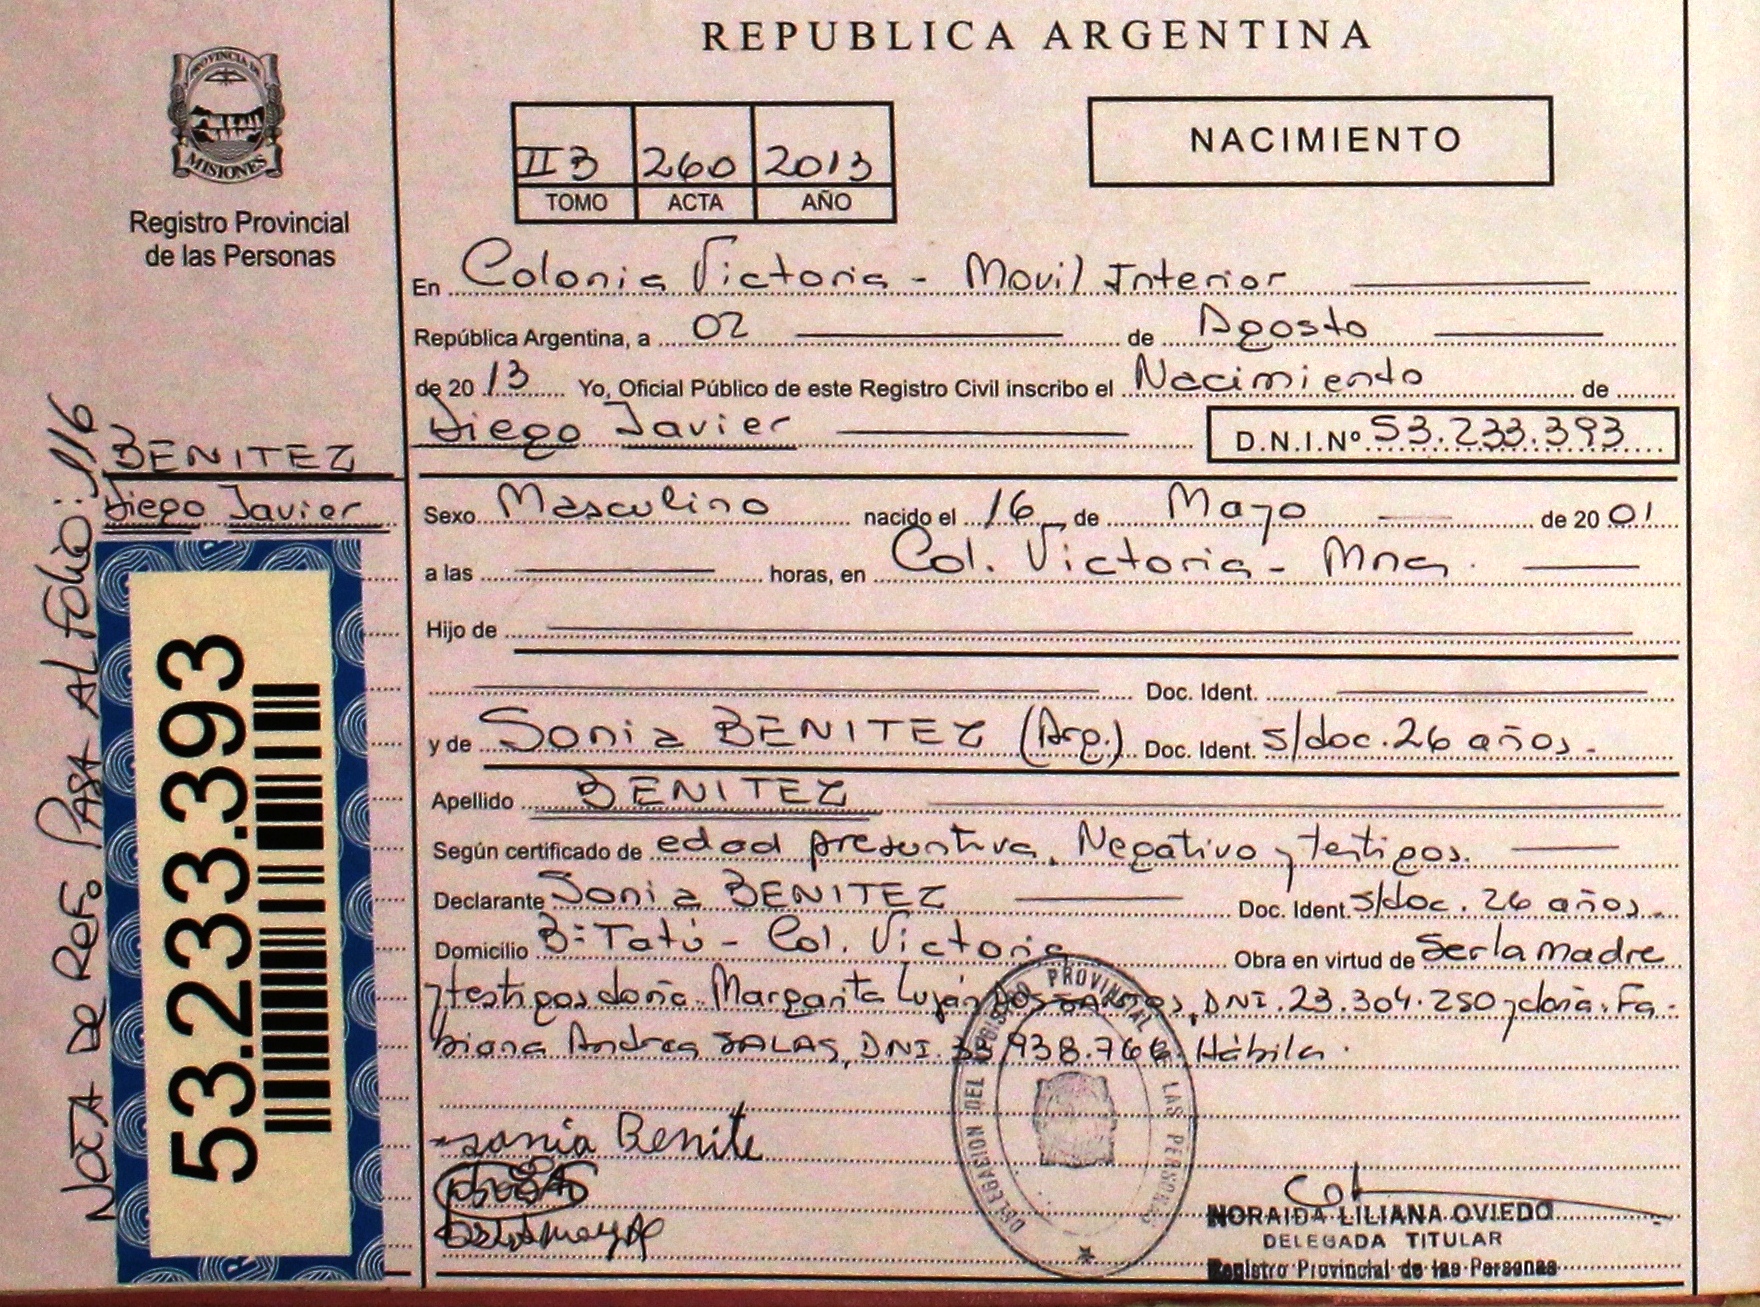 REPUBLICA ARGENTINA
PROVINCIA DE
MISIONES
Registro Provincial
de las Personas
II B 260 2013
TOMO ACTA AÑO
NACIMIENTO
En Colonia Victoria - Movil Interior
República Argentina, a 02 de Agosto
de 20 13 Yo, Oficial Público de este Registro Civil inscribo el Nacimiento de
Diego Javier D.N.I.Nº 53.233.393
BENITEZ
Diego Javier
NOTA DE REFo PASA AL FOLIO: 116
53.233.393
Sexo Masculino nacido el 16 de Mayo de 20 01
a las horas, en Col. Victoria - Mnes.
Hijo de
Doc. Ident.
y de Sonia BENITEZ (Arg.) Doc. Ident. s/doc. 26 años.
Apellido BENITEZ
Según certificado de edad presuntiva, Negativo y testigos.
Declarante Sonia BENITEZ Doc. Ident. s/doc. 26 años.
Domicilio Bº Tatú - Col. Victoria Obra en virtud de Ser la madre
y testigos doña. Margarita Luján DOS SANTOS, DNI. 23.304.250 y doña. Fa-
biana Andrea SALAS, DNI. 33.938.766. Hábiles.
sonia Benite
DELEGACION DEL REGISTRO PROVINCIAL DE LAS PERSONAS
NORAIDA LILIANA OVIEDO
DELEGADA TITULAR
Registro Provincial de las Personas